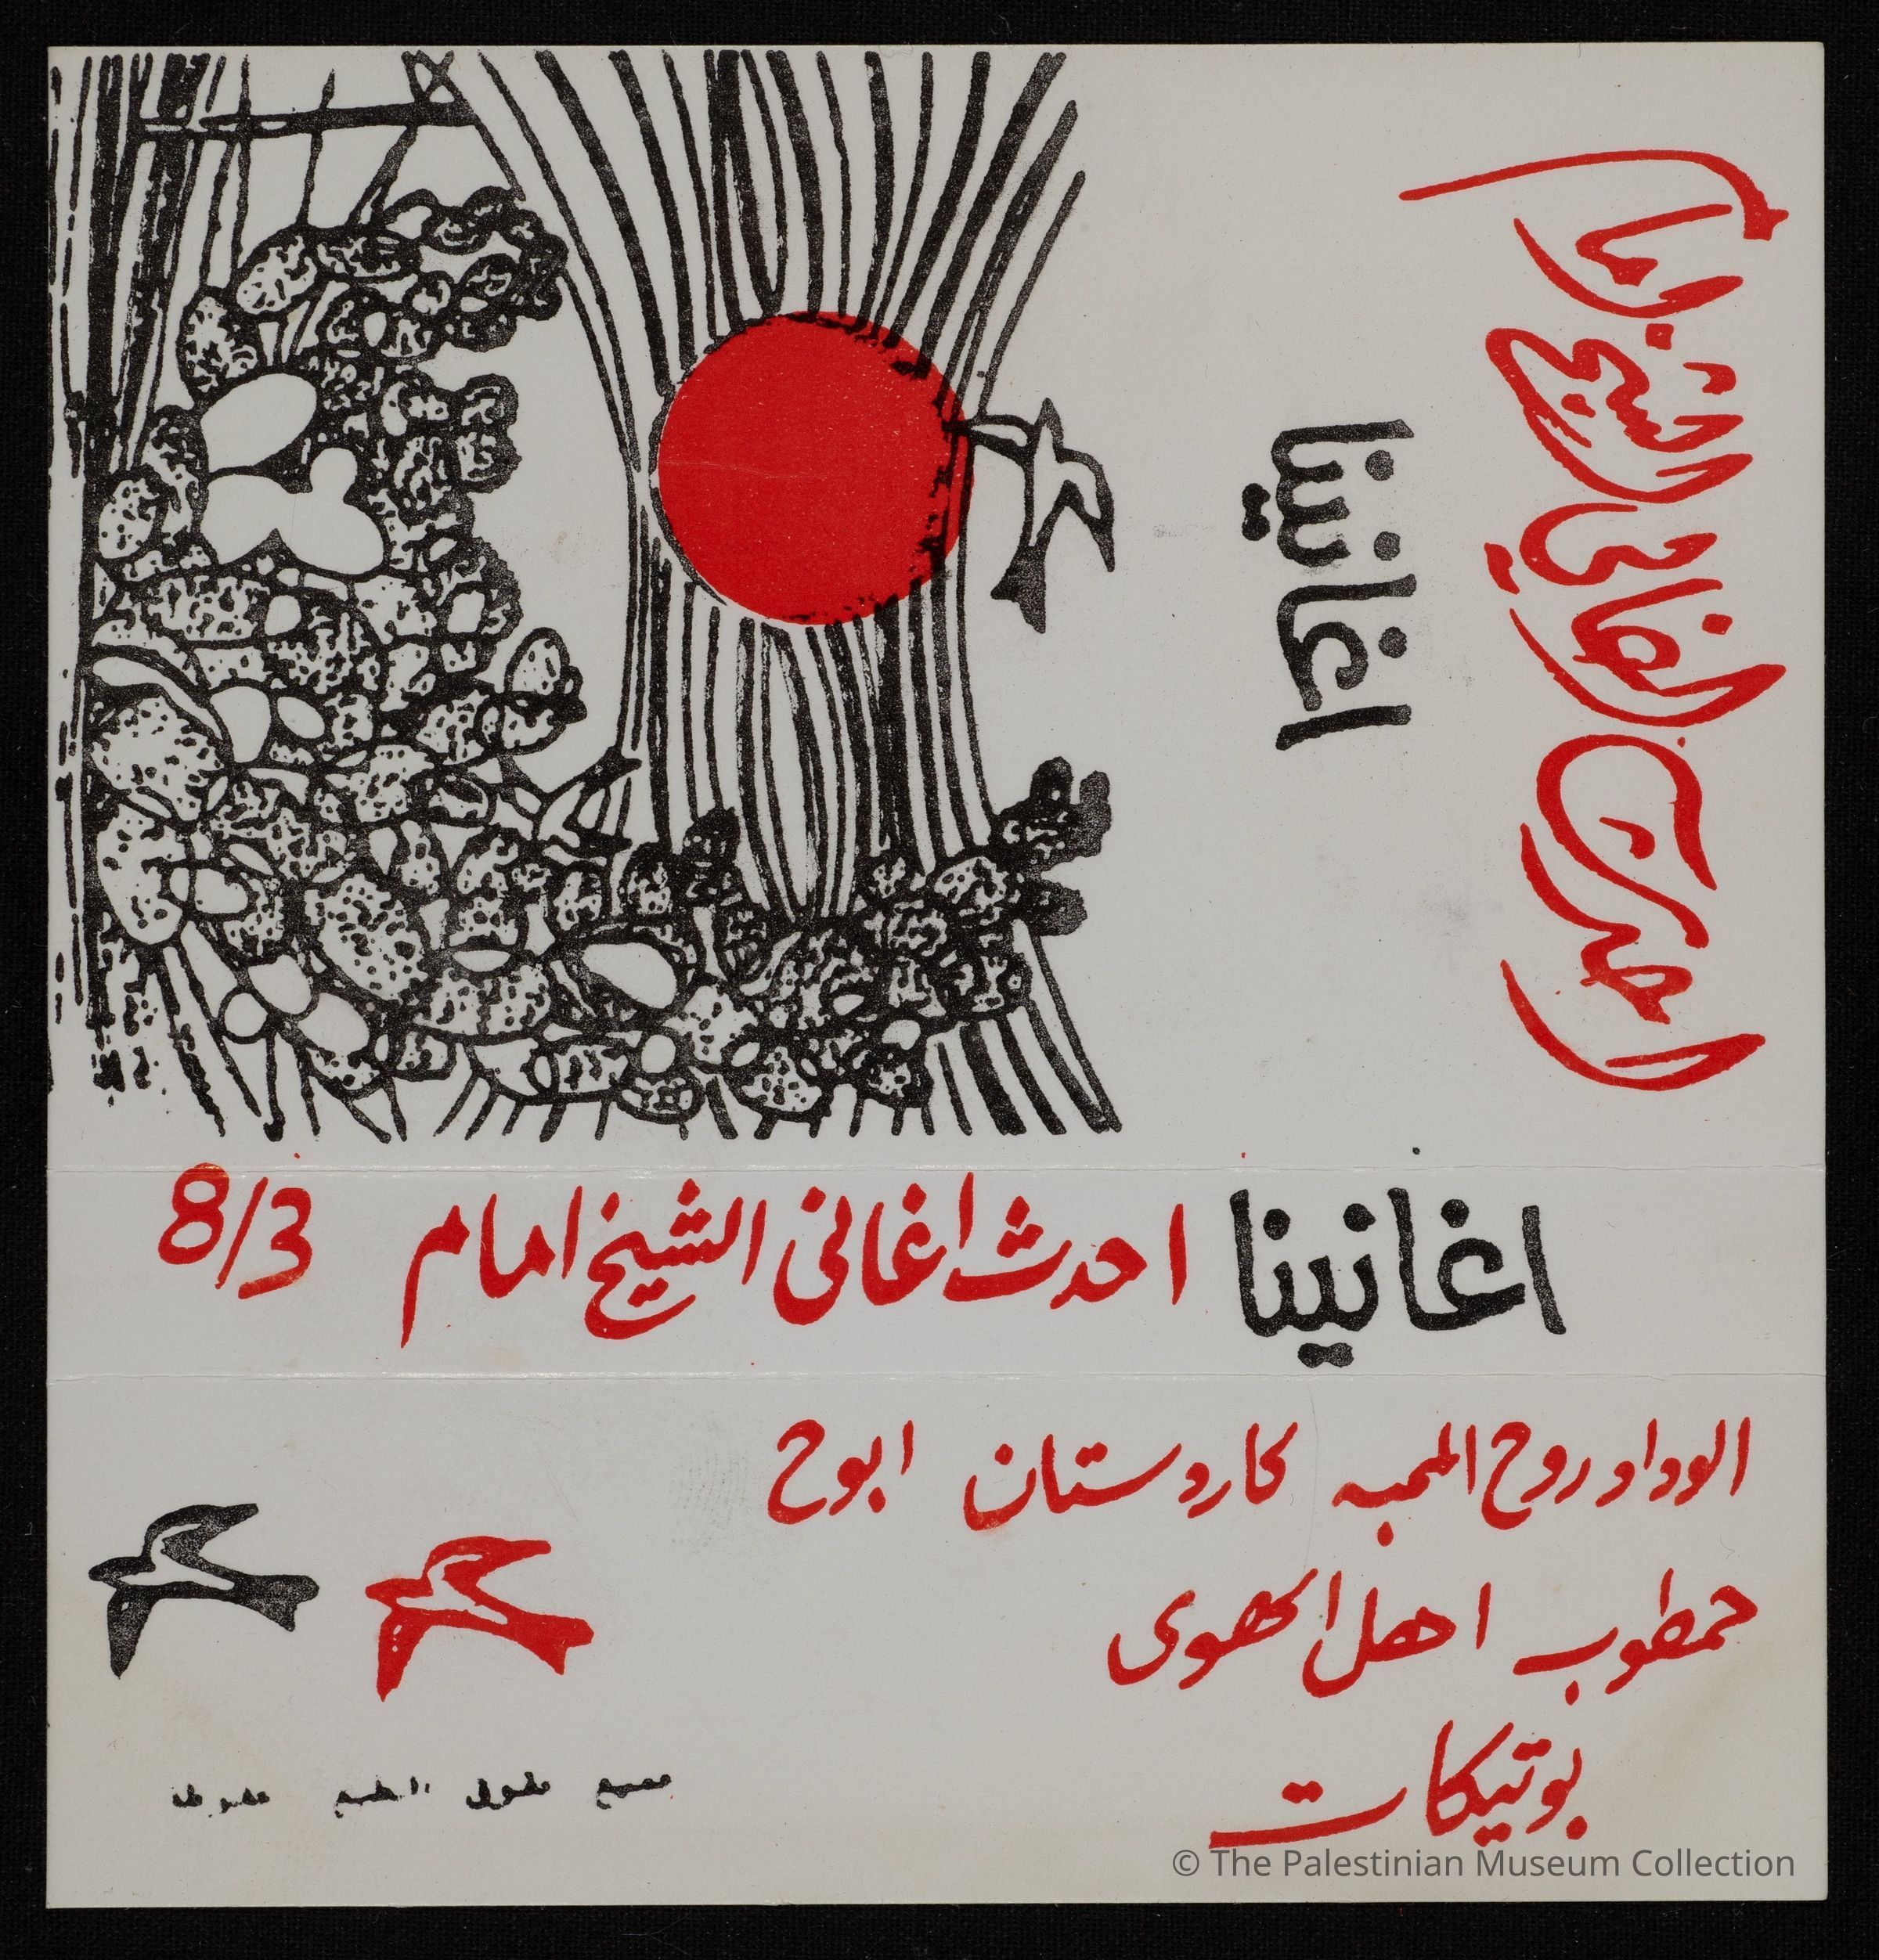 احدث اغاني الشيخ امام
اغانينا
اغانينا احدث اغانى الشيخ امام 8/3
الوداو روح المحبه كاروستان ابوح
حمطوب اهل الهوى
بوتيكات
جميع حقوق الطبع محفوظه
© The Palestinian Museum Collection